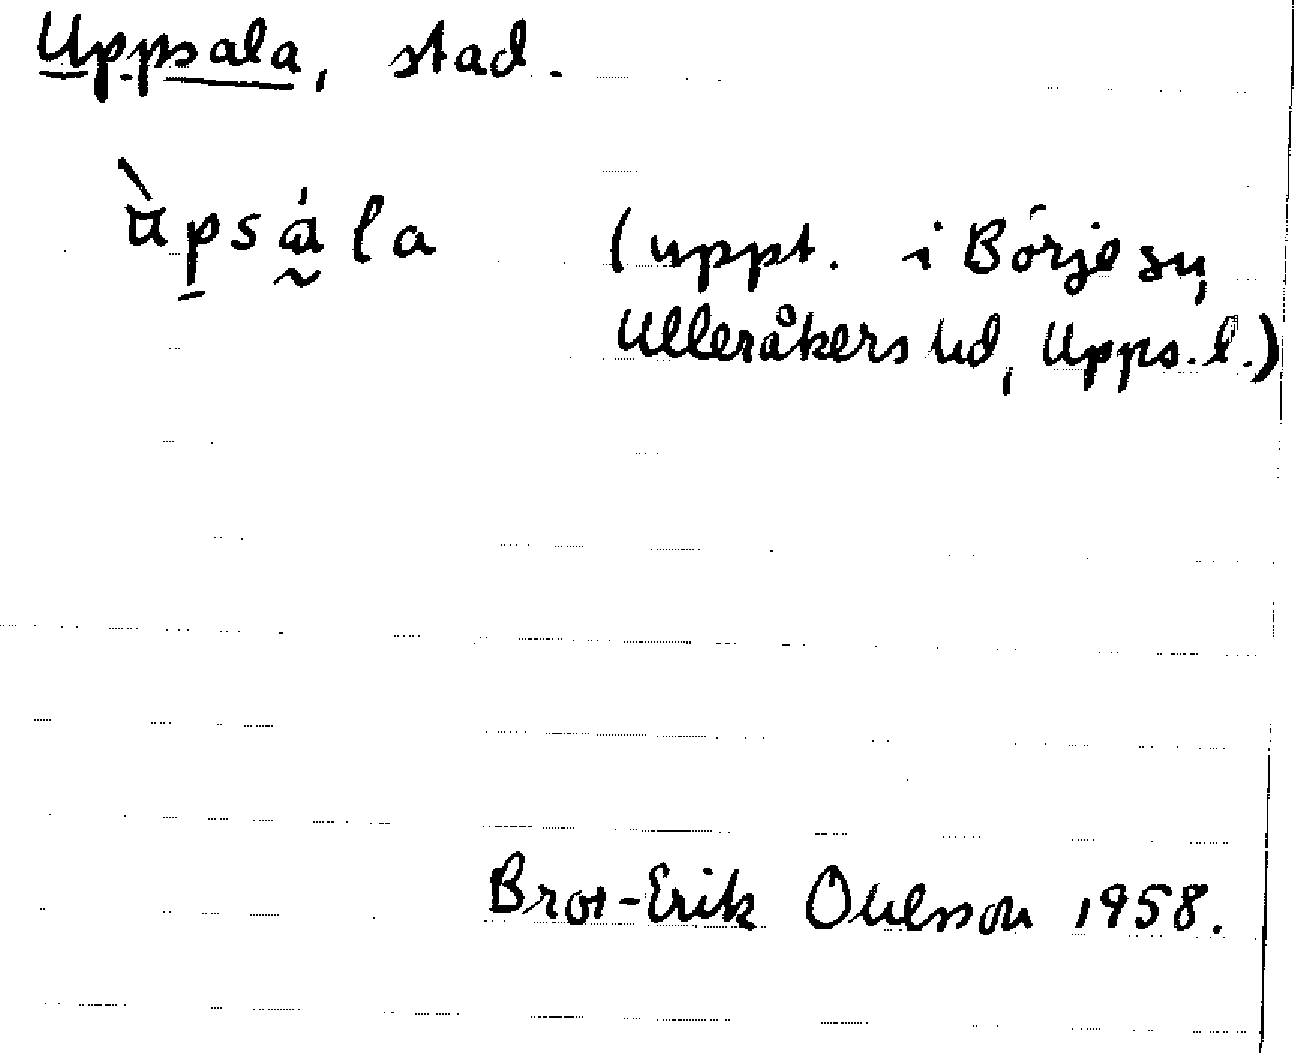 Uppsala, stad.
(uppt. i Börje sn,
Ulleråkers hd, Upps. l.)
Bror-Erik Ohlsson 1958.